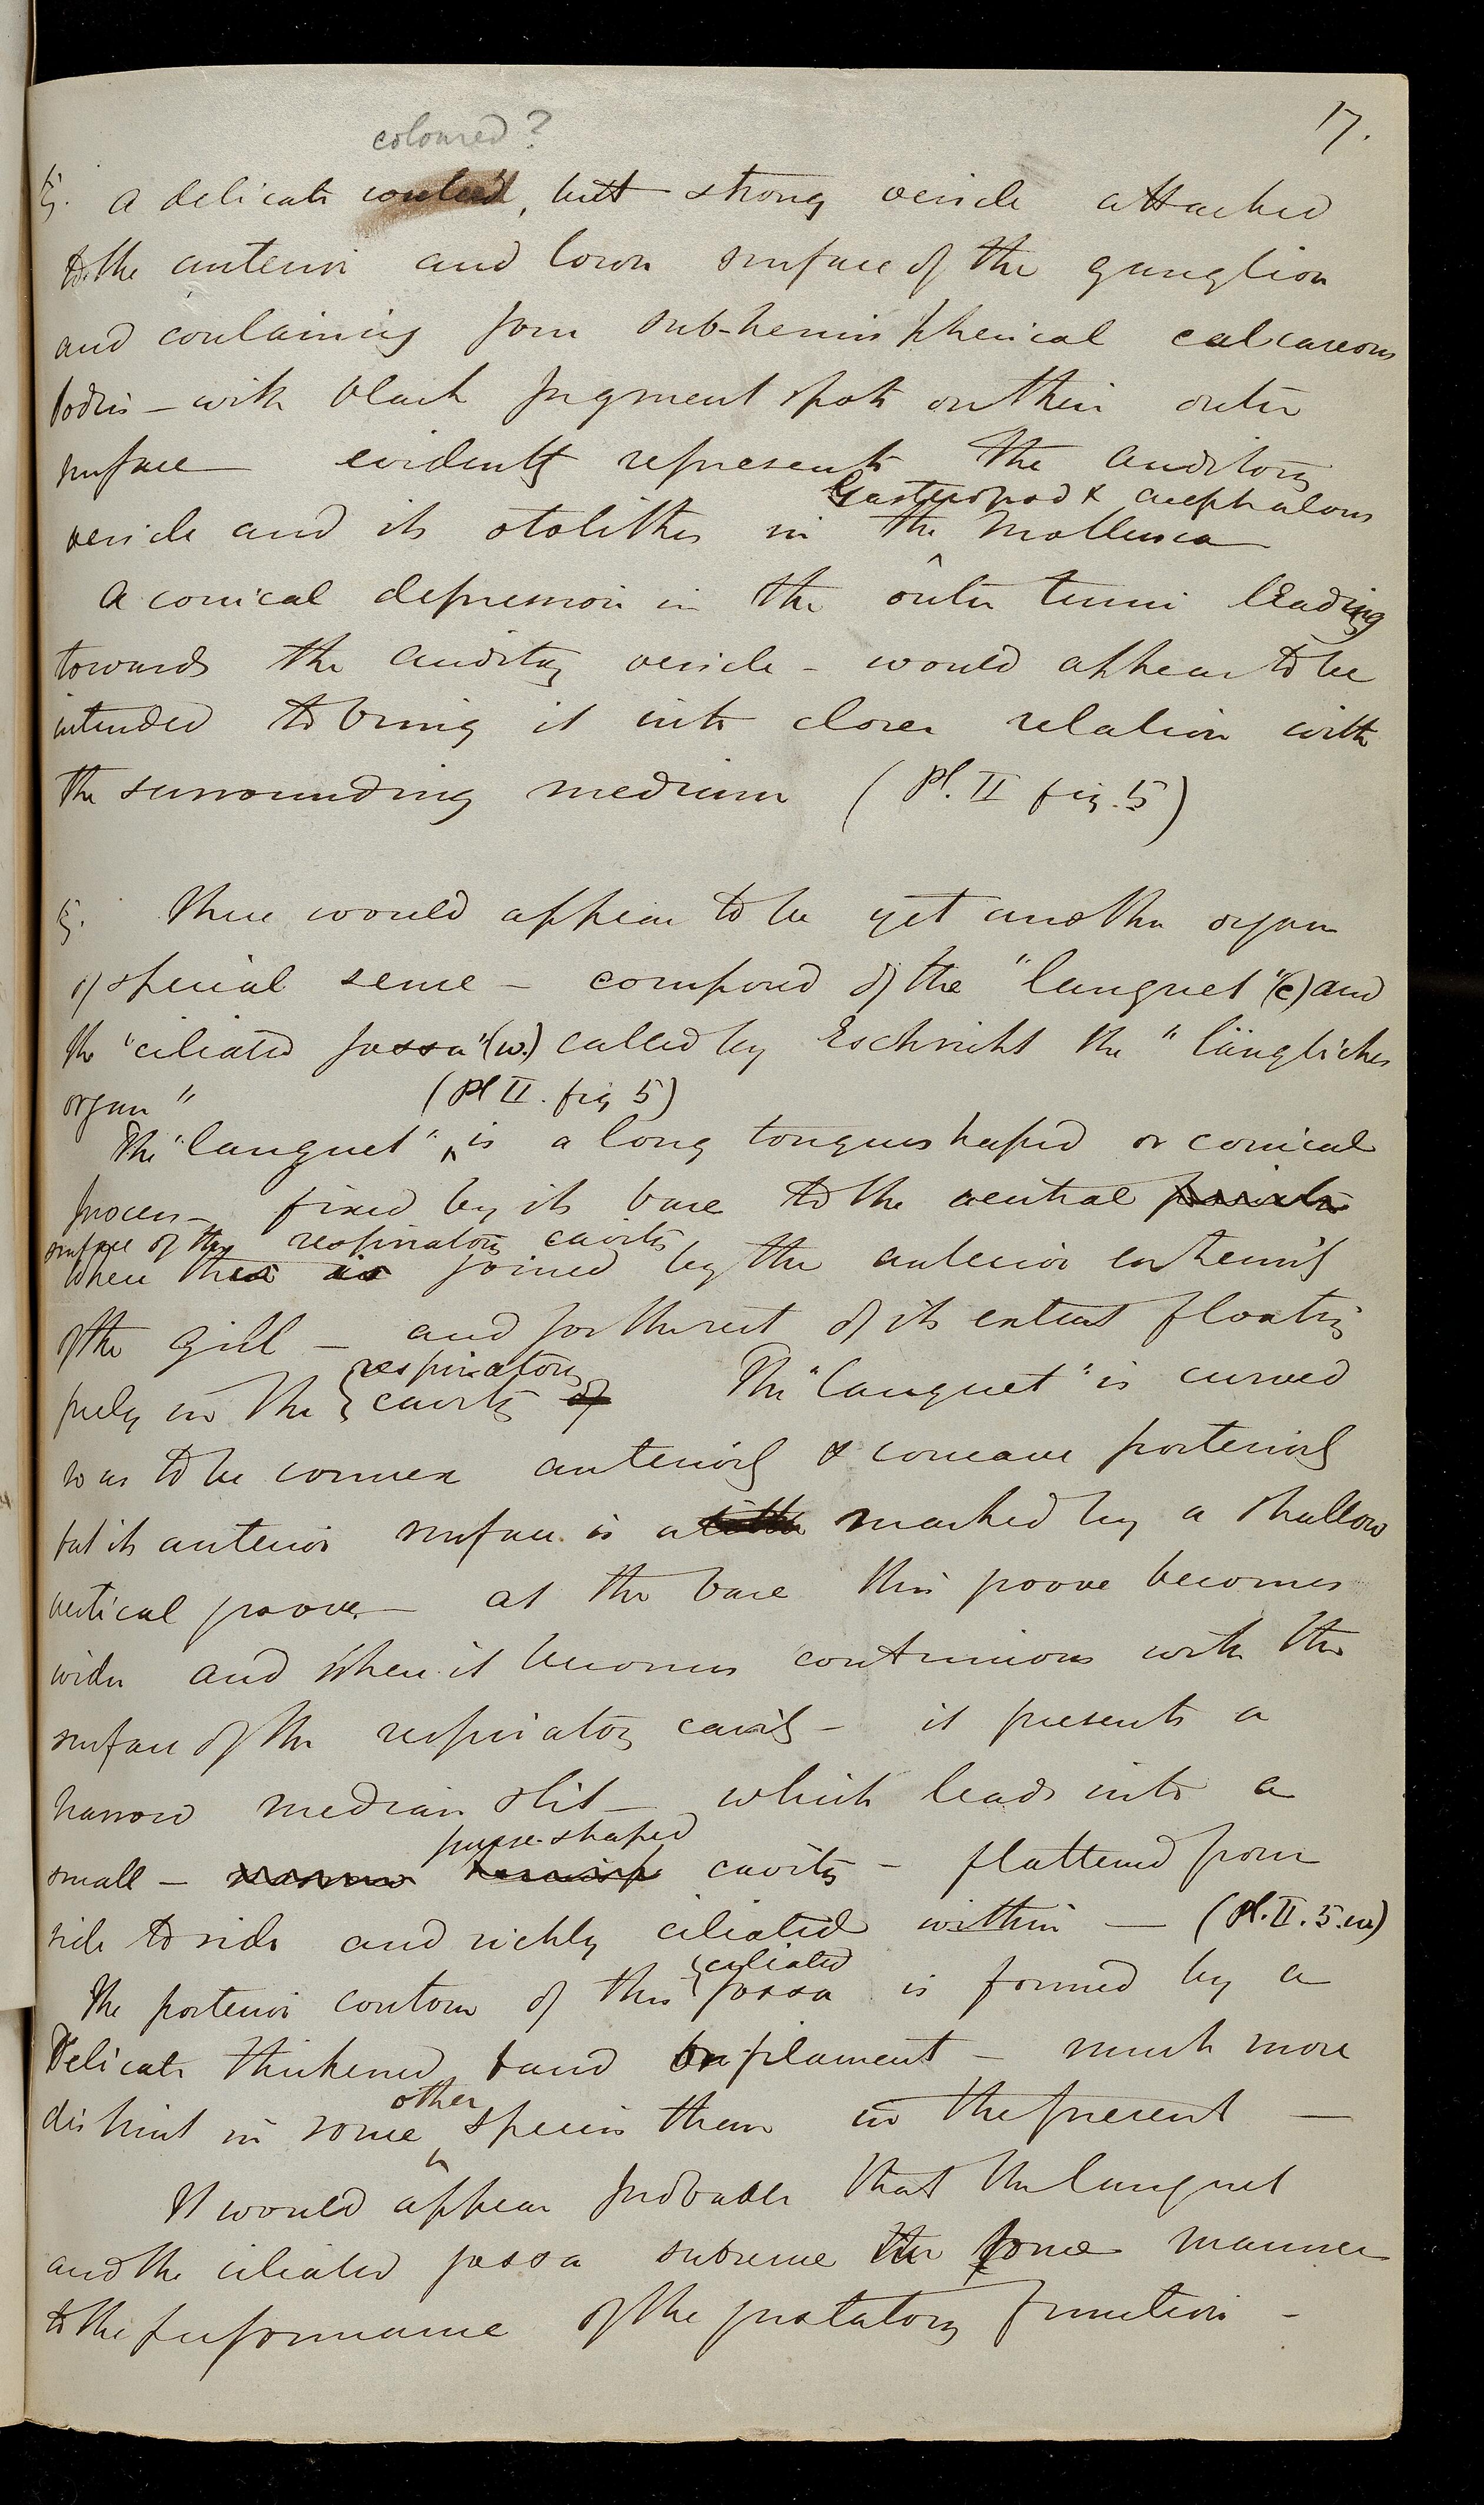 17.
coloured?
§. A delicate , but strong vesicle attached
to the anterior and lower surface of the ganglion
and containing four sub-hemispherical calcareous
bodies – with black pigment spots on their outer
surface – evidently represents the auditory
Gasteropod & acephalous
vesicle and its otolithes in the Mollusca
A conical depression in the outer tunic leading
towards the auditory vesicle – would appear to be
intended to bring it into closer relation with
the surrounding medium (Pl. II fig. 5)
§. There would appear to be yet another organ
of special sense – composed of the "languet" (e) and
the "ciliated fossa" (w.) called by Eschricht the "längliches
organ"
(Pl II. fig 5)
The "languet" is a long tongueshaped or conical
process – fixed by its base to the ventral parietes
surface of the respiratory cavity
where this is joined by the anterior extremity
of the gill – and for the rest of its extent floating
respiratory
freely in the cavity of The "languet" is curved
so as to be convex anteriorly & concave posteriorly
but its anterior surface is a little marked by a shallow
vertical groove – at the base this groove becomes
wider and where it becomes continuous with the
surface of the respiratory cavity – it presents a
narrow median slit – which leads into a
purse-shaped
small – narrow cavity – flattened from
side to side and richly ciliated within — (Pl. II. 5. w)
ciliated
The posterior contour of this fossa is formed by a
Delicate thickened band or filament – much more
other
distinct in some species than in the present —
It would appear probable that the languet
and the ciliated fossa subserve in some manner
to the performance of the gustatory function –